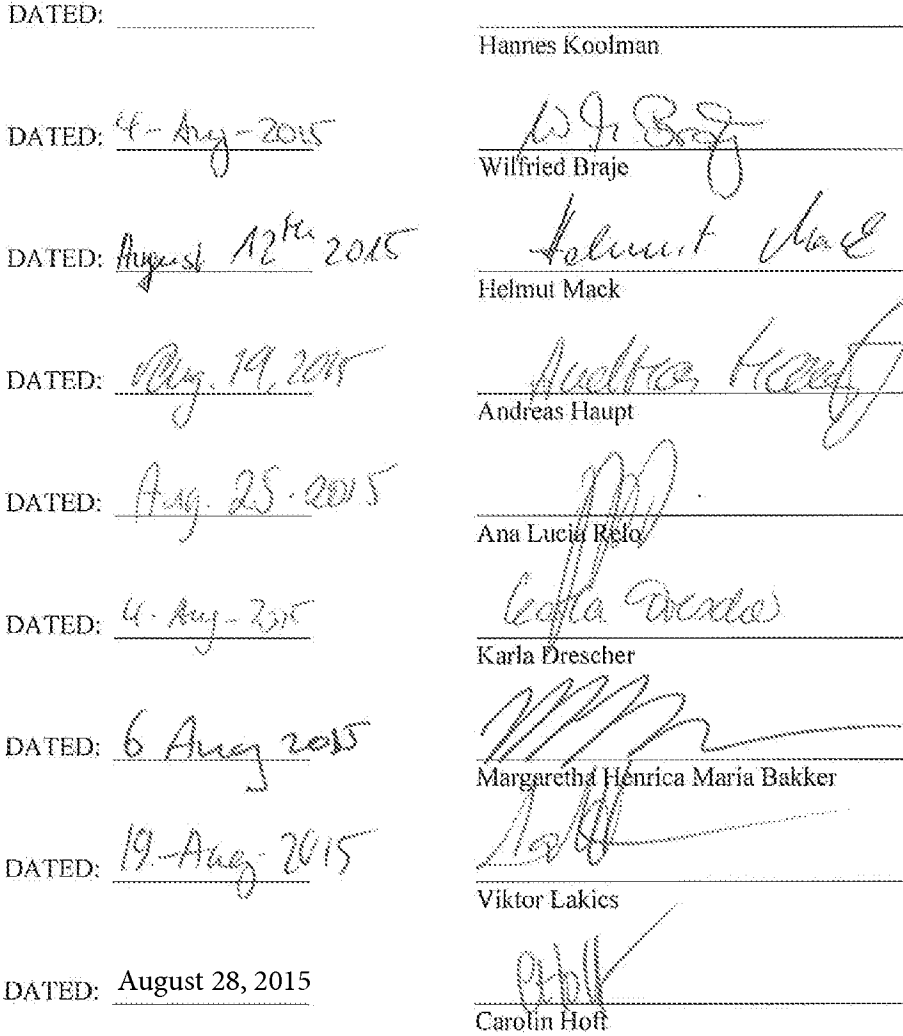 DATED:
Hannes Koolman
DATED: 4-Aug-2015
Wilfried Braje
DATED: August 12th 2015 Helmut Mack
Helmut Mack
DATED: Aug. 19, 2015 Andreas Haupt
Andreas Haupt
DATED: Aug. 25. 2015
Ana Lucia Relo
DATED: 4-Aug-2015 Karla Drescher
Karla Drescher
DATED: 6 Aug 2015
Margaretha Henrica Maria Bakker
DATED: 19-Aug-2015
Viktor Lakics
DATED: August 28, 2015 CHoft
Carolin Hoft